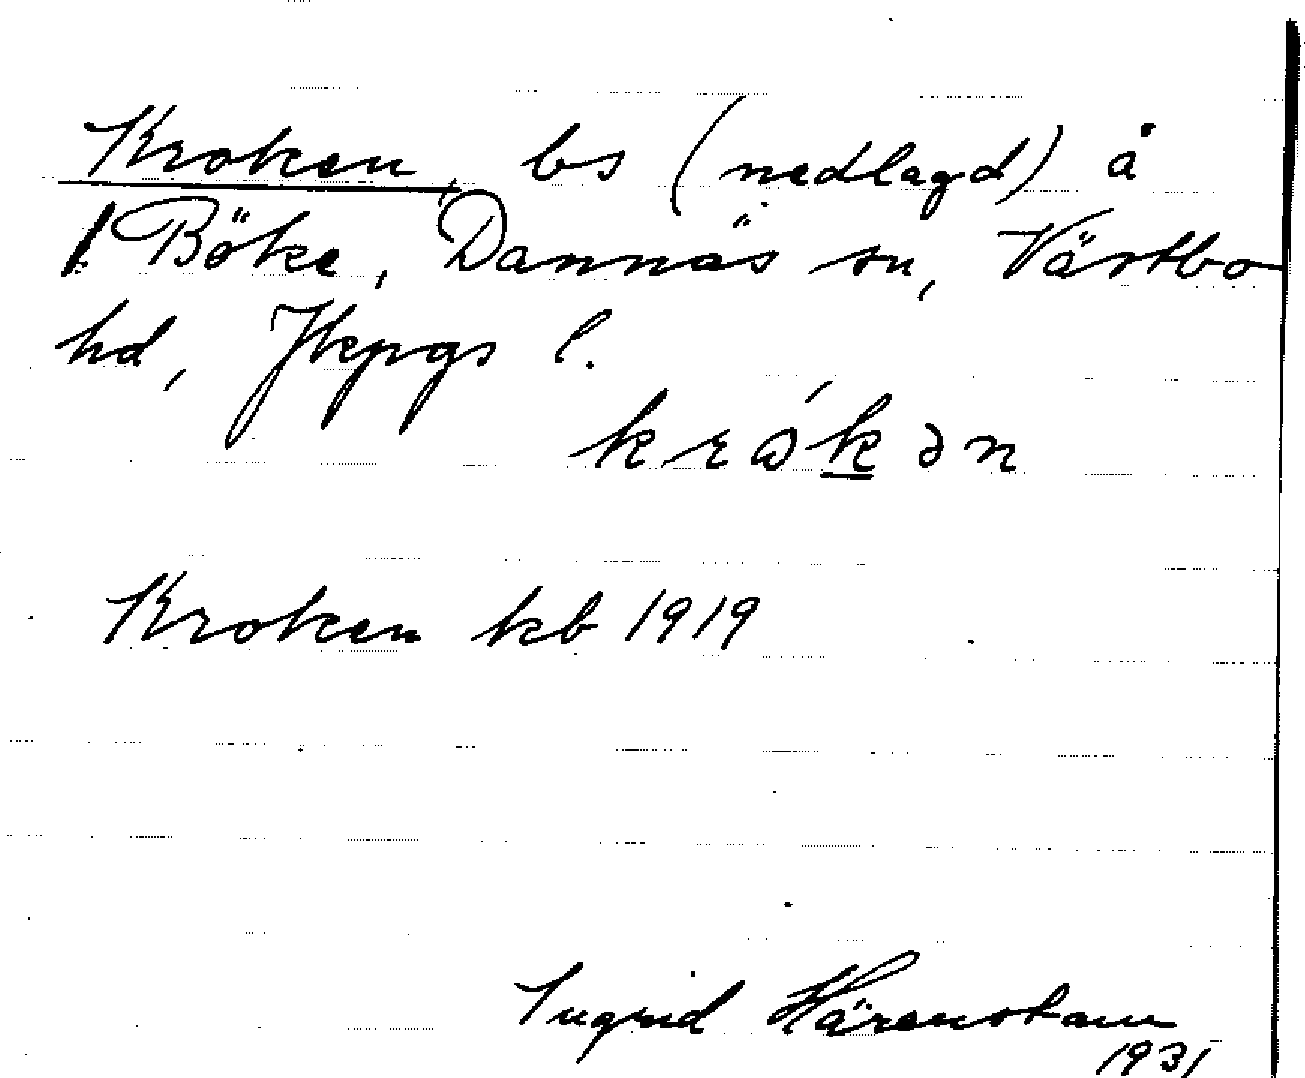 Kroken, bs (nedlagd) å
Böke, Dannäs sn, Västbo
hd, Jkpgs l.
krɷ́k̲ən
Kroken kb 1919
Ingrid Härenstam
1931